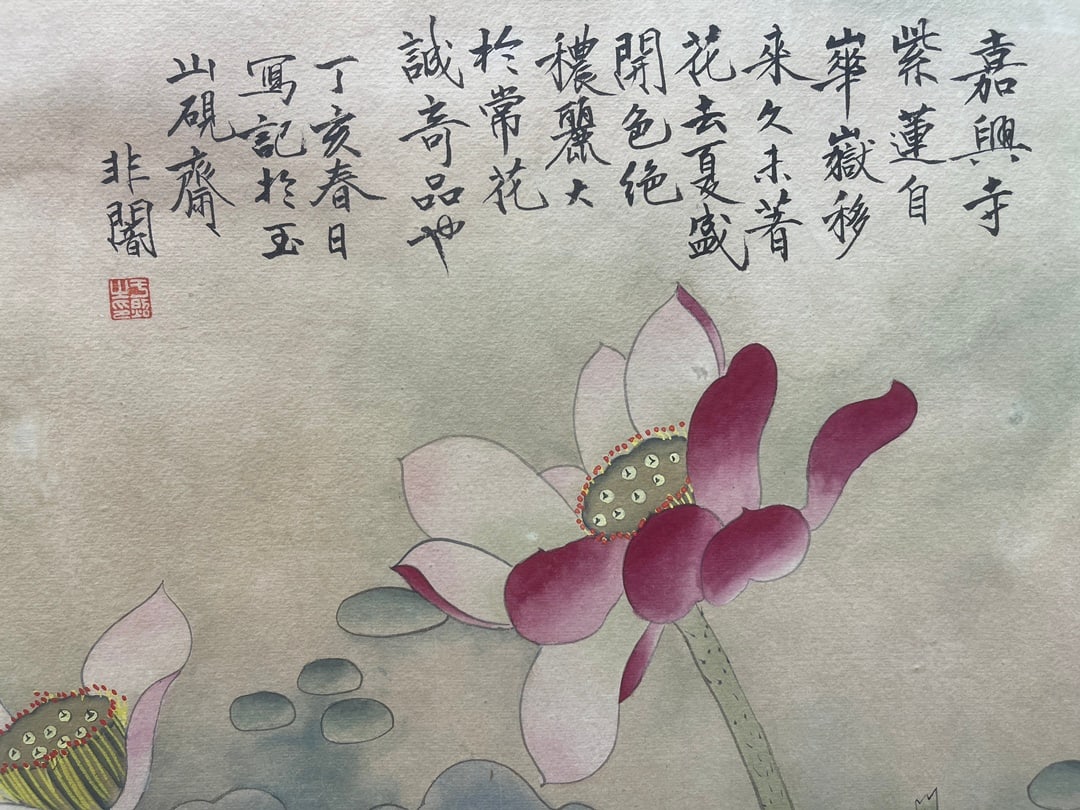 嘉興寺
紫蓮自
崋嶽移
來久未著
花去夏盛
開色绝
穠麗大
於常花
誠奇品也
丁亥春日
寫記於玉
山硯齋
非闇